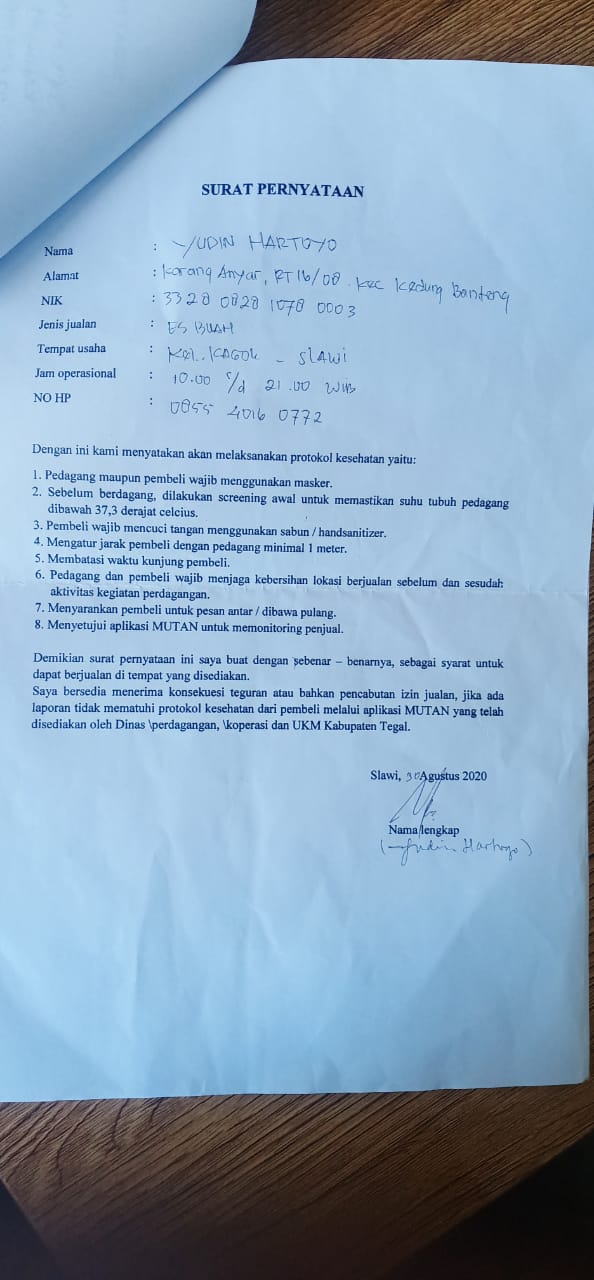 SURAT PERNYATAAN
Nama : YUDIN HARTOYO
Alamat : Karang Anyar, RT 16/08. Kec Kedung Banteng
NIK : 3328 0828 1078 0003
Jenis jualan : ES BUAH
Tempat usaha : Kel. KAGOK - SLAWI
Jam operasional : 10.00 s/d 21.00 WIB
NO HP : 0855 4016 0772
Dengan ini kami menyatakan akan melaksanakan protokol kesehatan yaitu:
1. Pedagang maupun pembeli wajib menggunakan masker.
2. Sebelum berdagang, dilakukan screening awal untuk memastikan suhu tubuh pedagang
dibawah 37,3 derajat celcius.
3. Pembeli wajib mencuci tangan menggunakan sabun / handsanitizer.
4. Mengatur jarak pembeli dengan pedagang minimal 1 meter.
5. Membatasi waktu kunjung pembeli.
6. Pedagang dan pembeli wajib menjaga kebersihan lokasi berjualan sebelum dan sesudah
aktivitas kegiatan perdagangan.
7. Menyarankan pembeli untuk pesan antar / dibawa pulang.
8. Menyetujui aplikasi MUTAN untuk memonitoring penjual.
Demikian surat pernyataan ini saya buat dengan sebenar – benarnya, sebagai syarat untuk
dapat berjualan di tempat yang disediakan.
Saya bersedia menerima konsekuesi teguran atau bahkan pencabutan izin jualan, jika ada
laporan tidak mematuhi protokol kesehatan dari pembeli melalui aplikasi MUTAN yang telah
disediakan oleh Dinas \perdagangan, \koperasi dan UKM Kabupaten Tegal.
Slawi, 30 Agustus 2020
Nama lengkap
(Yudin Hartoyo)